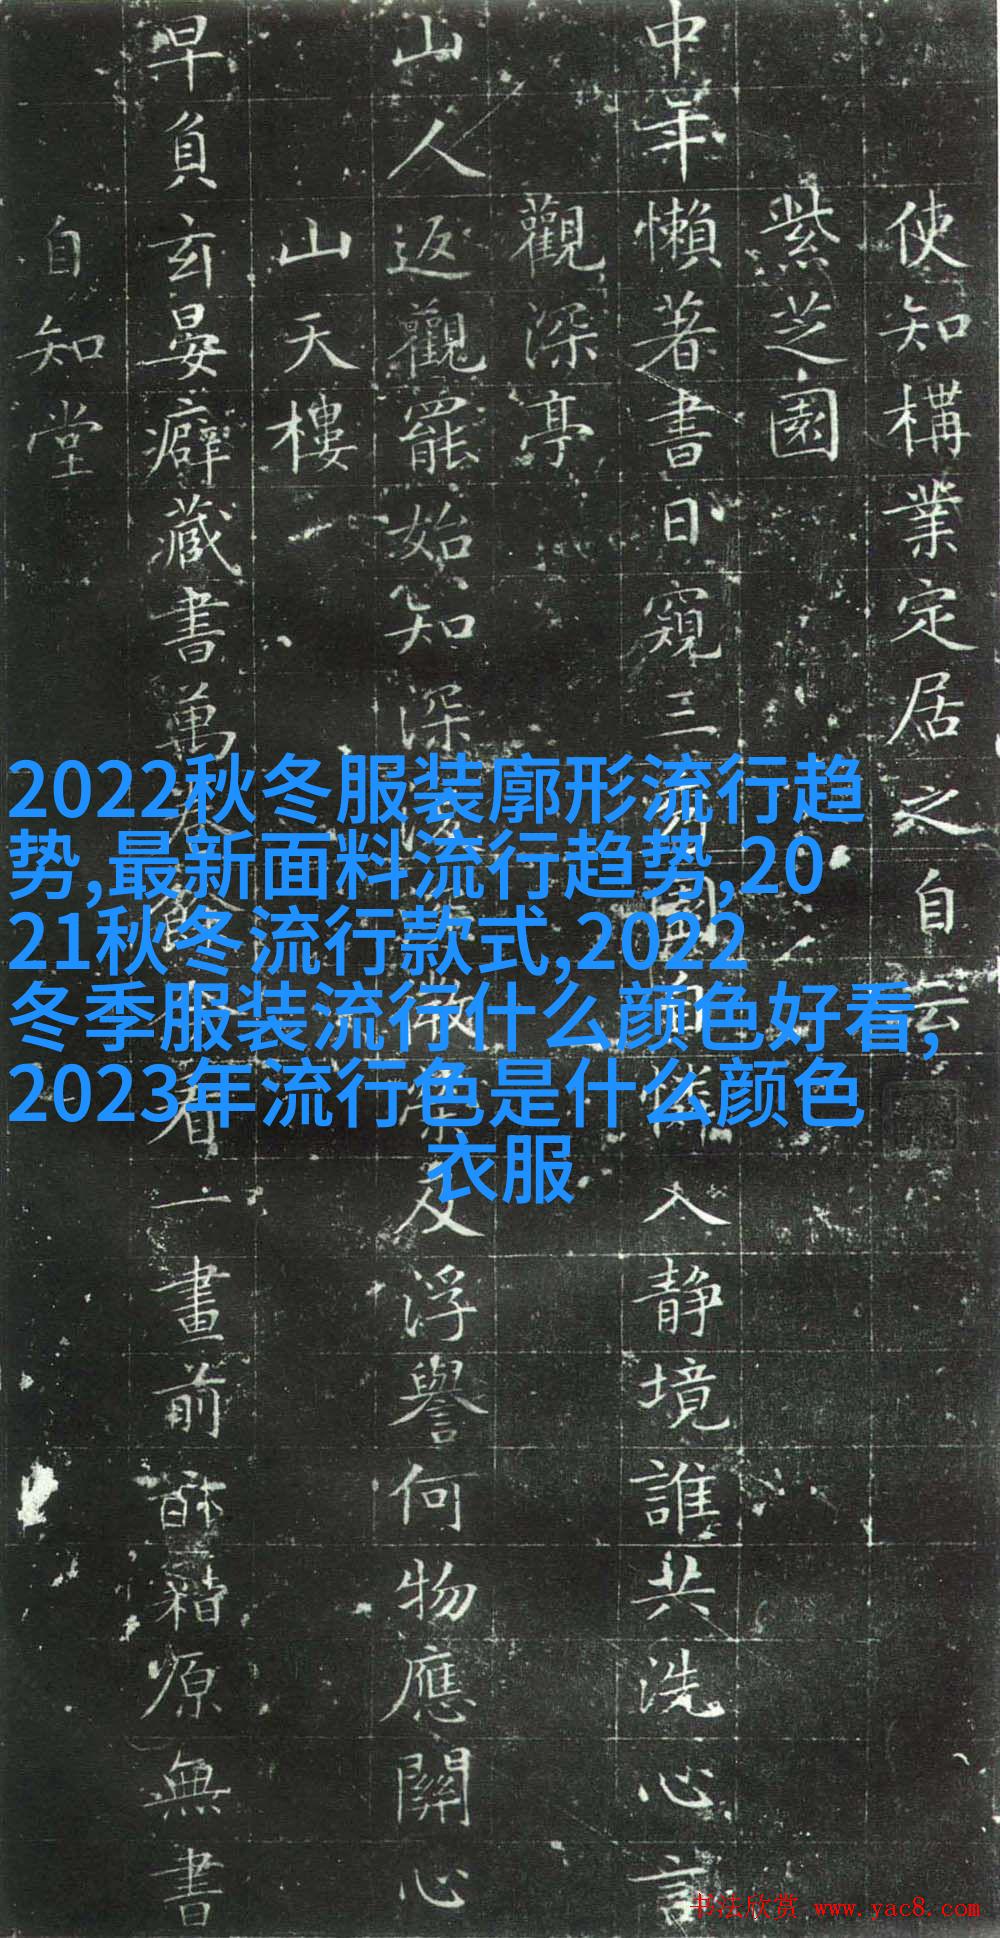 2022秋冬服装廓形流行趋
势,最新面料流行趋势,20
21秋冬流行款式,2022
冬季服装流行什么颜色好看,
2023年流行色是什么颜色
衣服
使知構業定居之自云
紫芝園
中年懶著書日窺三入静境誰共洗心言
觀深亭
山人返觀罷始知深及浮譽何物應關心
山天樓
早負玄晏癖藏書萬看一畫前籍原無書
自知堂
书法欣赏 www.yac8.com